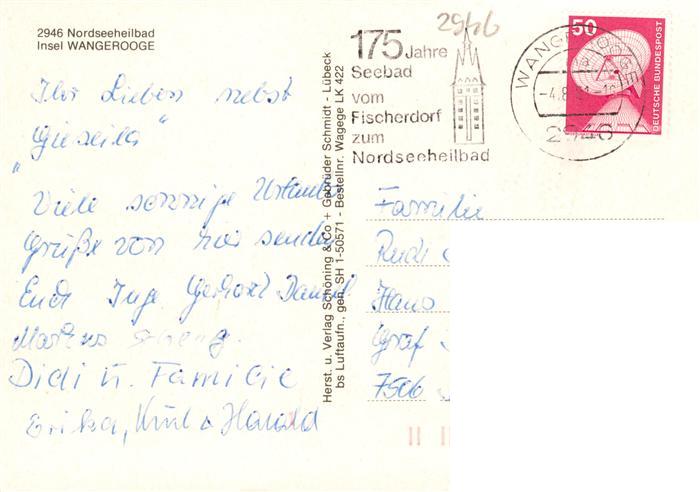 2946 Nordseeheilbad
Insel WANGEROOGE
2946
175 Jahre
Seebad
vom
Fischerdorf
zum
Nordseeheilbad
WANGE
-4.8.
2946
50
DEUTSCHE BUNDESPOST
Ihr Lieben nebst
Giesela"
Viele sonnige Urlaubs
Grüße von hier senden
Euch Inge Gerhard Daniel
Markus
Didi u. Familie
Erika, Kurt u Harald
Herst. u. Verlag Schöning & Co + Gebrüder Schmidt - Lübeck
bs Luftaufn., gen. SH 1-50571 - Bestellnr. Wagege LK 422
Familie
Rudi
Hans
Graf
7506